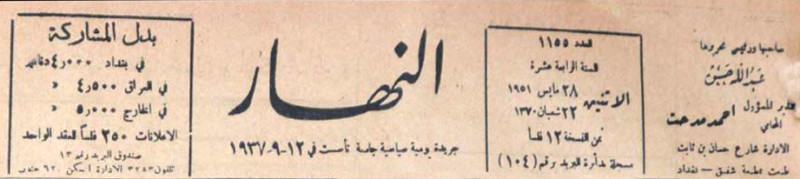 صاحبها ورئيس تحريرها
عبدالله حسن
المدير المسؤول
المحامي
احمد مدحت
الادارة شارع حسان بن ثابت
طبعت بمطبعة شفيق - بغداد
العدد ١١٥٥
السنة الرابعة عشرة
الاثنين
٢٨ مايس ١٩٥١
٢٢ شعبان ١٣٧٠
ثمن النسخة ١٢ فلساً
مسجلة بدائرة البريد برقم (١٠٤)
النهار
جريدة يومية سياسية جامعة تأسست في ١٢-٩-١٩٣٧
بدل المشاركة
في بغداد ٤٫٠٠٠ دنانير
في العراق ٤٫٥٠٠ «
في الخارج ٥٫٠٠٠ «
الاعلانات ٢٥٠ فلساً للعقد الواحد
صندوق البريد رقم ١٣
تلفون ٣٢٨٣ الادارة